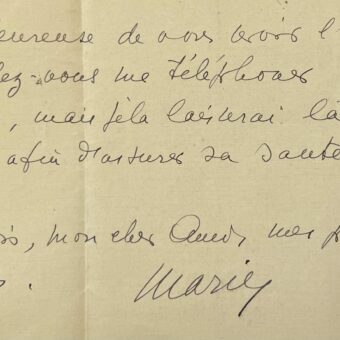 eureuse de vous revoir l'
lez-vous me téléphoner
, mais je la laisserai là
afin d'assurer sa santé
, mon cher Ami, mes p
Marie